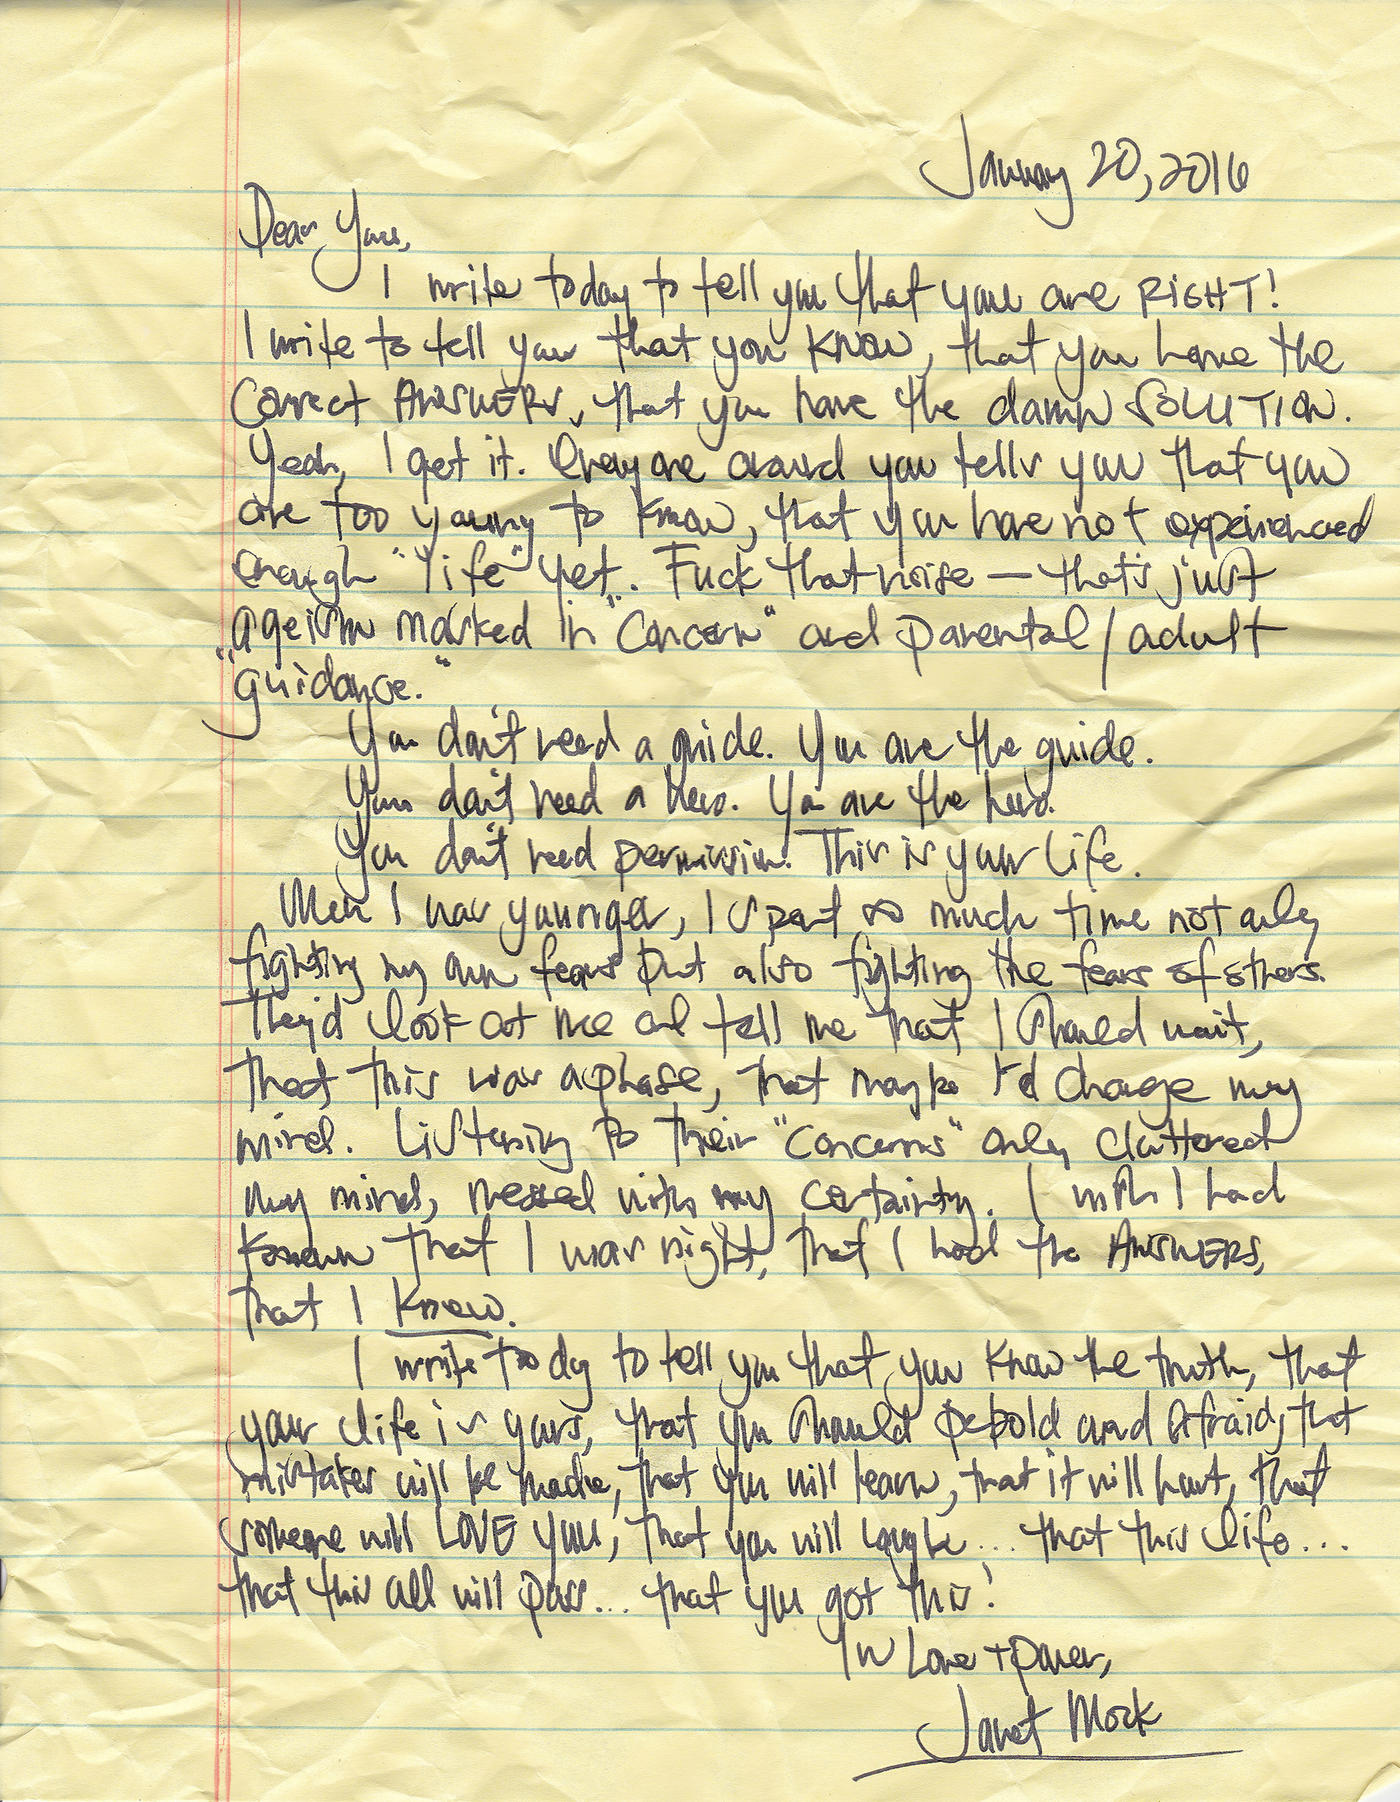 January 20, 2016
Dear You,
I write today to tell you that you are RIGHT!
I write to tell you that you KNOW, that you have the
correct ANSWERS, that you have the damn SOLUTION.
Yeah, I get it. Everyone around you tells you that you
are too young to know, that you have not experienced
enough "life" yet. Fuck that noise — that's just
ageism masked in "concern" and parental/adult
"guidance."
You don't need a guide. You are the guide.
You don't need a hero. You are the hero.
You don't need permission. This is your life.
When I was younger, I spent so much time not only
fighting my own fears but also fighting the fears of others.
They'd look at me and tell me that I should wait,
that this was a phase, that maybe I'd change my
mind. Listening to their "concerns" only cluttered
my mind, messed with my certainty. I wish I had
known that I was right, that I had the ANSWERS,
that I knew.
I write today to tell you that you know the truth, that
your life is yours, that you should be bold and afraid, that
mistakes will be made, that you will learn, that it will hurt, that
someone will LOVE you, that you will laugh... that this life...
that this all will pass... that you got this!
In Love + Power,
Janet Mock